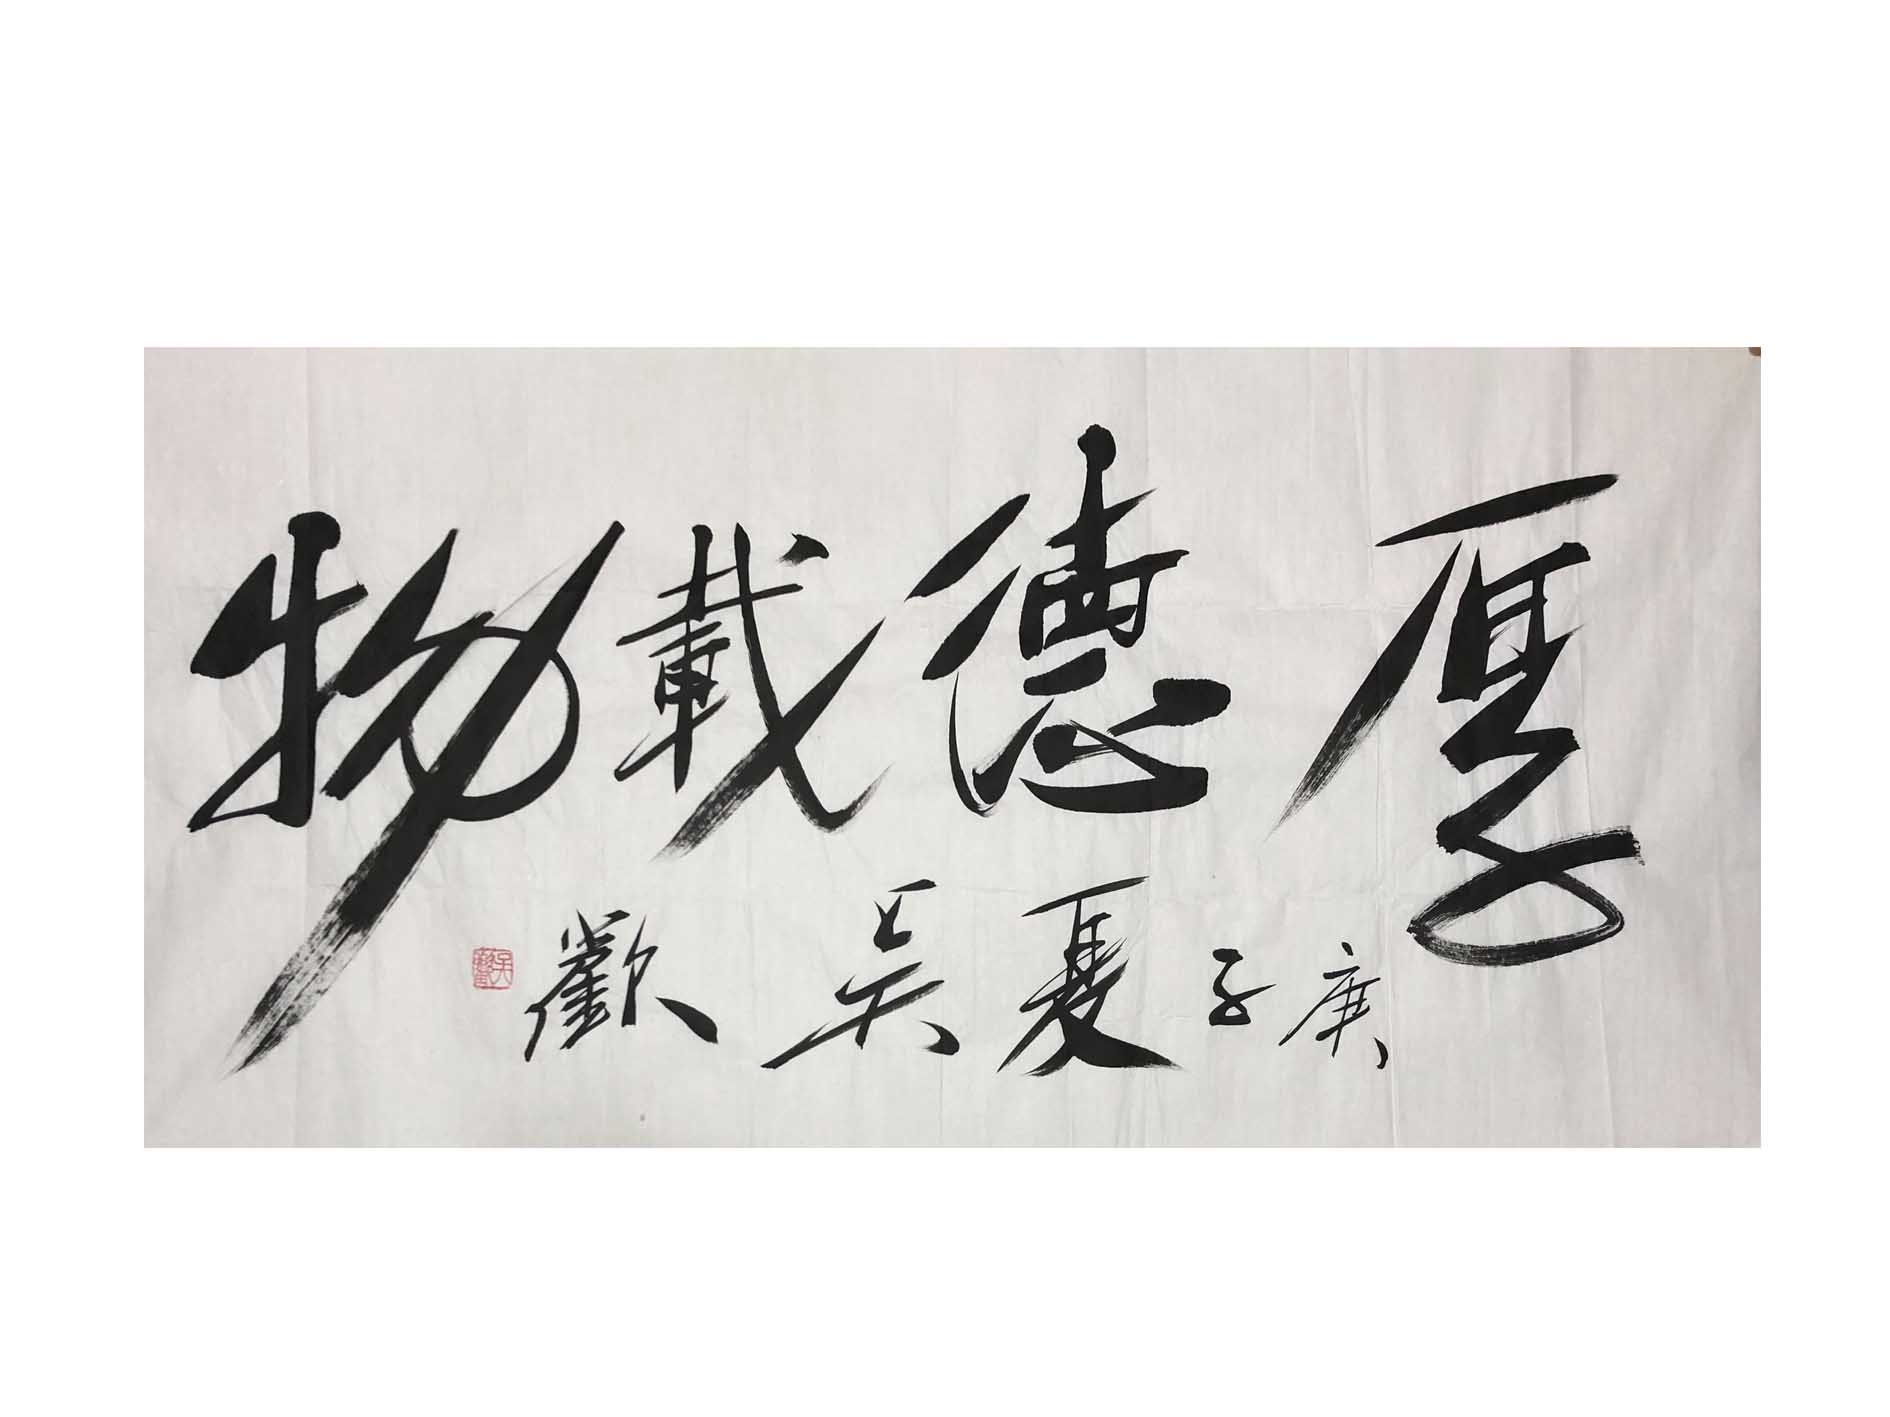 厚德載物
庚子夏吴歡
吴歡